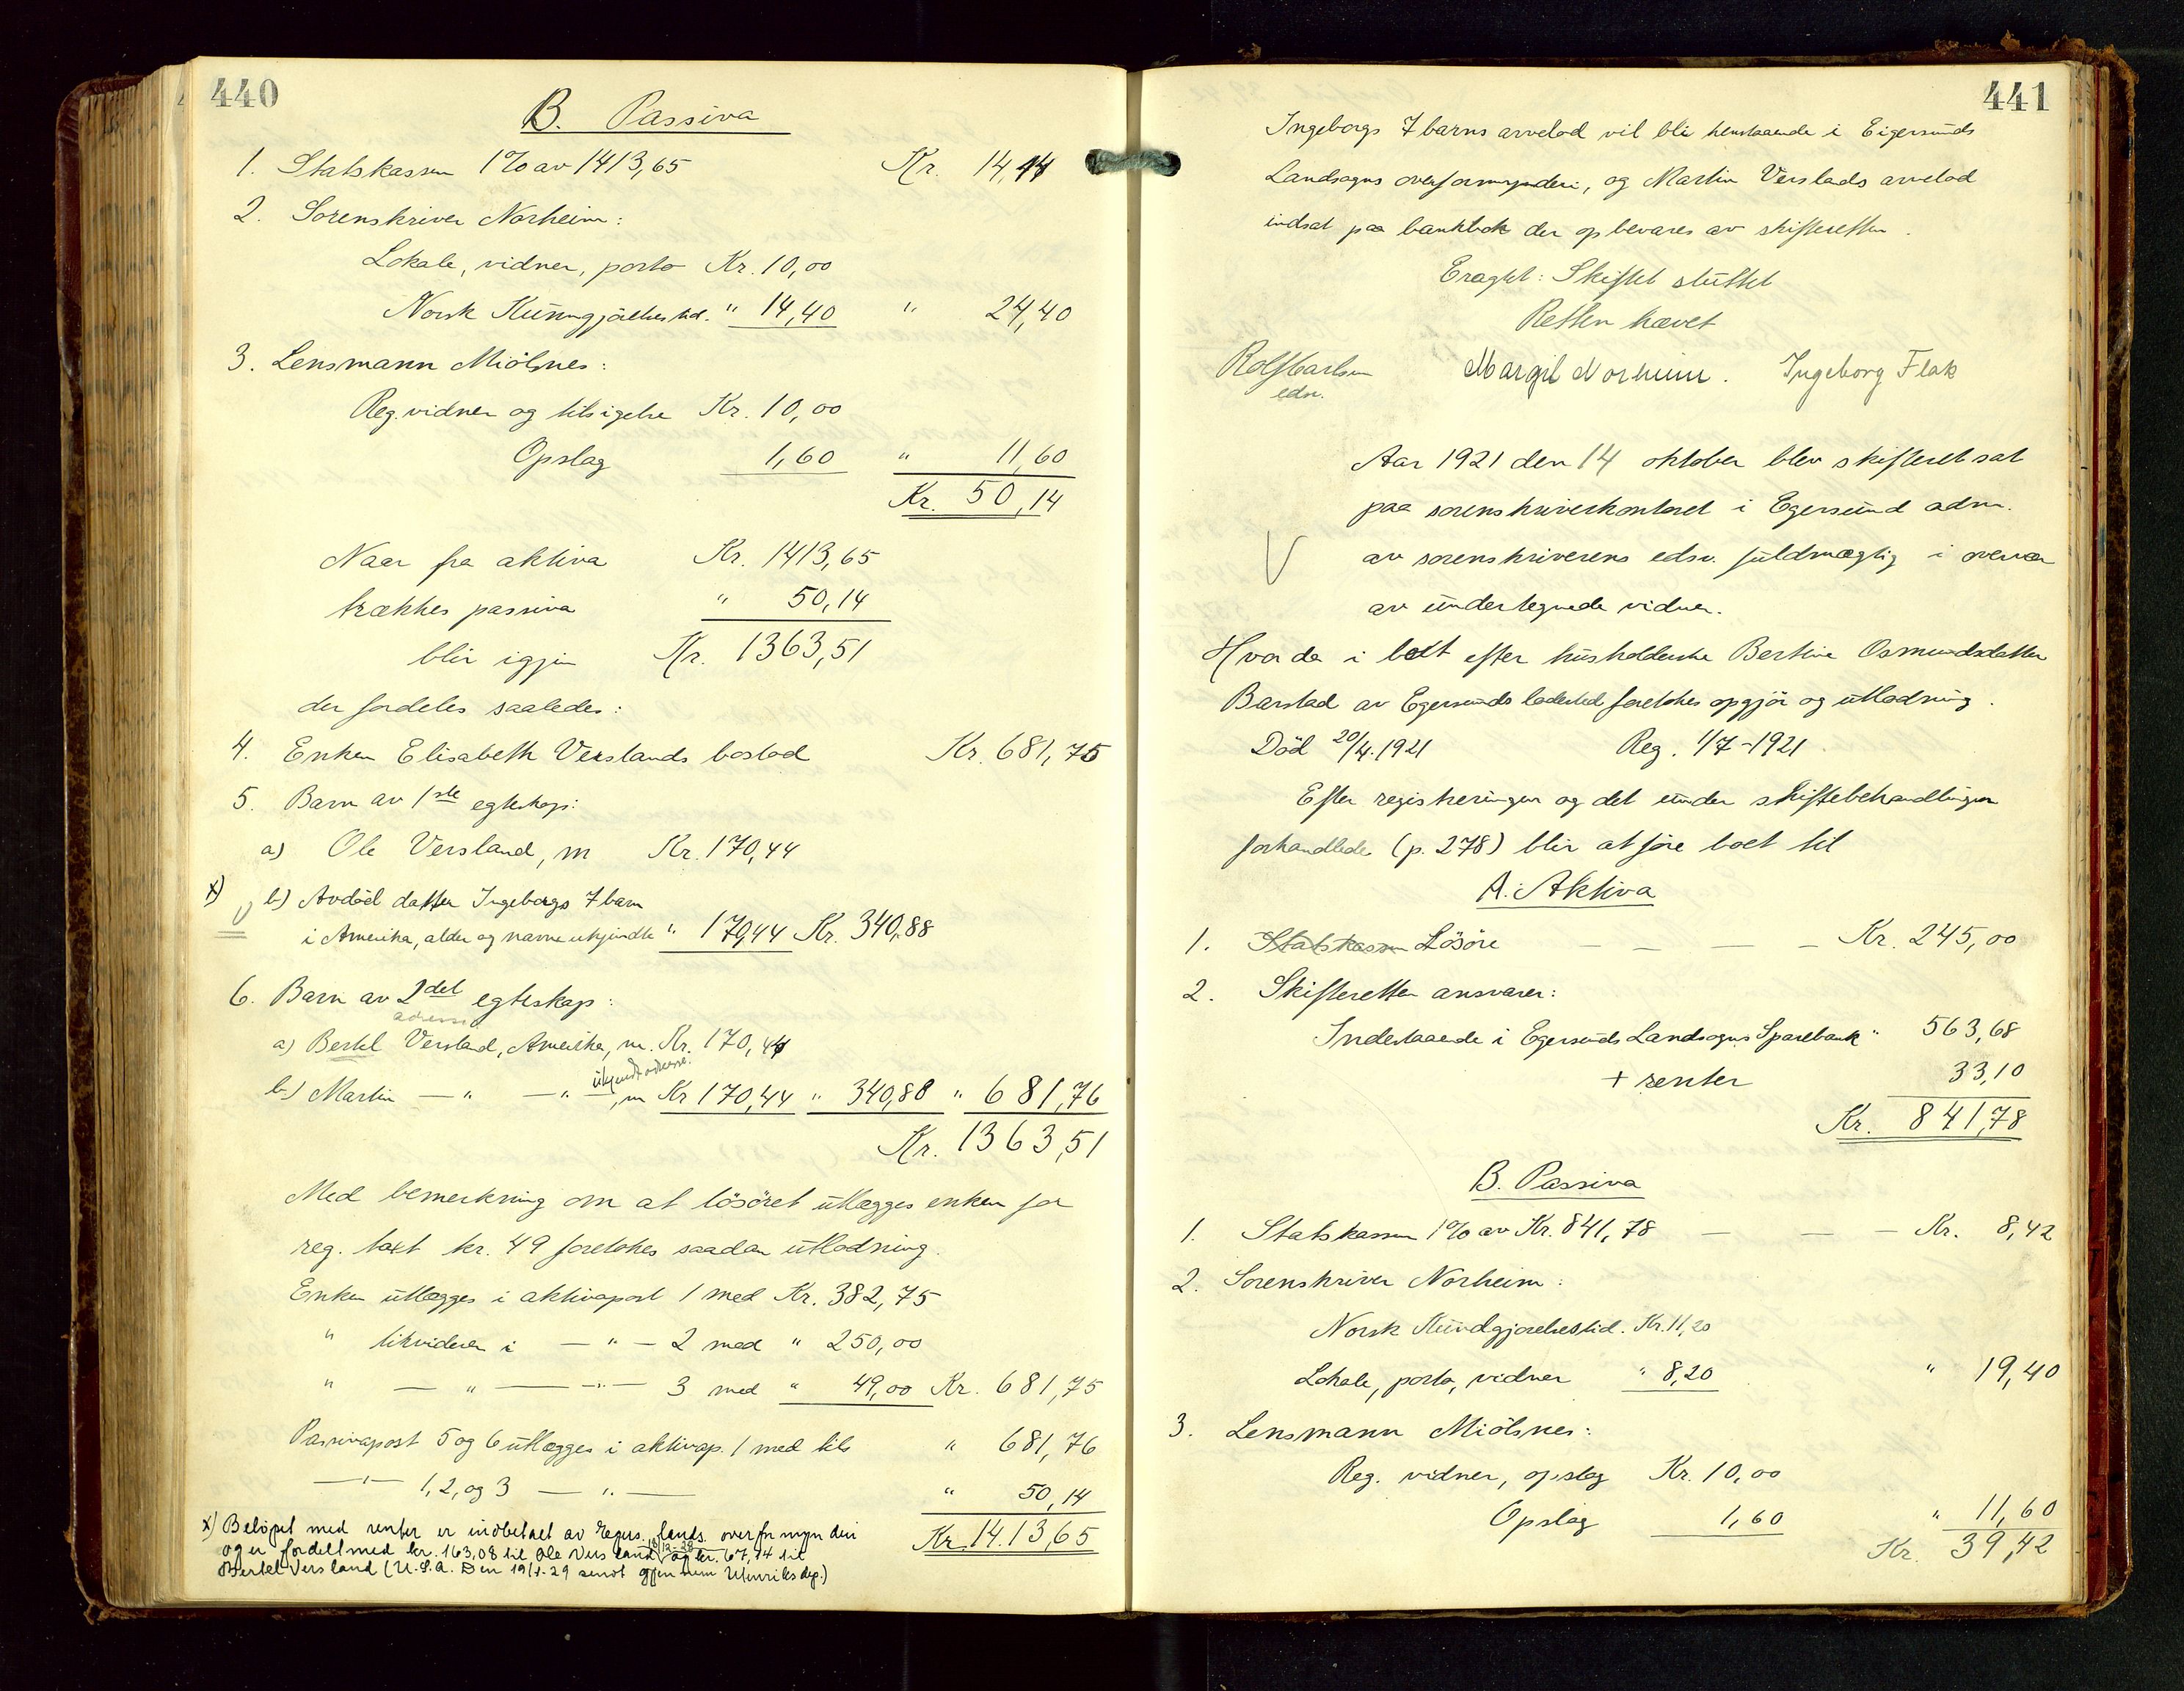 440
B. Passiva
1. Statskassen 1% av 1413,65 Kr. 14,14
2. Sorenskriver Norheim:
Lokale, vidner, porto Kr. 10,00
Norsk Kunngjörelses tid. " 14,40 " 24,40
3. Lensmann Miölsnes:
Reg. vidner og tilsigelse Kr. 10,00
Opslag 1,60 " 11,60
Kr. 50,14
Naar fra aktiva Kr. 1413,65
trækkes passiva " 50,14
blir igjen Kr. 1363,51
der fordeles saaledes:
4. Enken Elisabeth Verslands boslod Kr. 681,75
5. Barn av 1ste egteskap:
a) Ole Versland, m Kr. 170,44
x) b) Avdöd datter Ingeborgs 7 barn
i Amerika, alder og navne ukjendte " 170,44 Kr. 340,88
6. Barn av 2det egteskap:
adresse
a) Bertel Versland, Amerika, m. Kr. 170,44
ukjendt adresse.
b) Martin — " — " , m Kr 170,44 " 340,88 " 681,76
Kr. 1363,51
Med bemerkning om at lösöret utlægges enken for
reg. takst kr. 49 foretokes saadan utlodning.
Enken utlægges i aktivapost 1 med Kr. 382,75
" likvideres i — " — 2 med " 250,00
" — " — " — 3 med " 49,00 Kr. 681,75
Passivapost 5 og 6 utlægges i aktivap. 1 med tils " 681,76
— " — 1, 2, og 3 — " — " 50,14
Kr. 1413,65
x) Belöpet med renter er indbetalt av Egers. lands. overformynderi
18/12-28
og er fordelt med kr. 163,08 til Ole Versland og kr. 67,14 til
Bertel Versland (U.S.A. Den 19/1-29 sendt gjennem Utenriksdep.)
441
Ingeborgs 7 barns arvelod vil bli henstaaende i Eigersunds
Landsogns overformynderi, og Martin Verslands arvelod
indsat paa bankbok der opbevares av skifteretten.
Eragtet: Skiftet sluttet
Retten hævet
Rolf Carlsen Margit Norheim. Ingeborg Flak
edsv.
Aar 1921 den 14 oktober blev skifteret sat
paa sorenskriverkontoret i Egersund adm.
av sorenskriverens edsv. fuldmægtig i overvær
av undertegnede vidner.
Hvor da i boet efter husholderske Bertine Osmundsdatter
Barstad av Egersunds ladested foretokes opgjör og utlodning.
Död 20/4.1921 Reg. 1/7-1921
Efter registreringen og det under skiftebehandlingen
forhandlede (p. 278) blir at före boet til
A. Aktiva
1. Statskassen Lösöre — — — — Kr. 245,00
2. Skifteretten ansvarer:
Indestaaende i Egersunds Landsogns Sparebank " 563,68
+ renter 33,10
Kr. 841,78
B. Passiva
1. Statskassen 1% av Kr. 841,78 — — — Kr. 8,42
2. Sorenskriver Norheim:
Norsk Kundgjörelsestid. Kr. 11,20
Lokale, porto, vidner " 8,20 " 19,40
3. Lensmann Miölsnes:
Reg. vidner, opslag Kr. 10,00
Opslag 1,60 " 11,60
Kr. 39,42